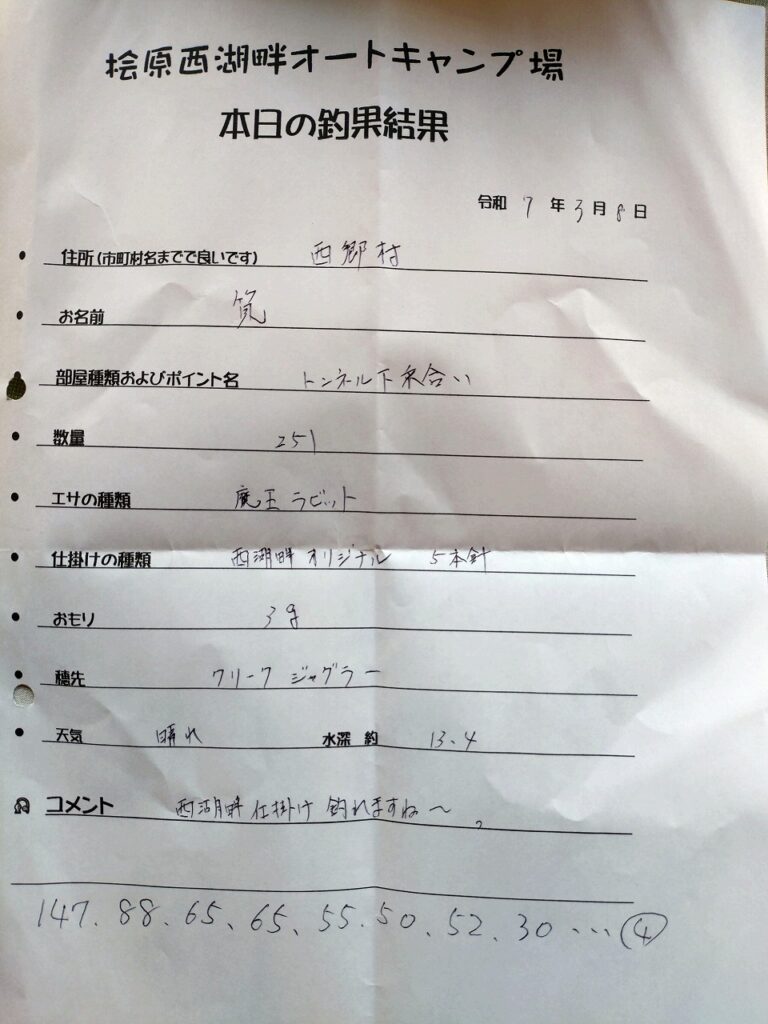 桧原西湖畔オートキャンプ場
本日の釣果結果
令和 7 年 3 月 8 日
住所(市町村名までで良いです) 西郷村
お名前
部屋種類およびポイント名 トンネル下 乗合い
数量 251
エサの種類 魔王 ラビット
仕掛けの種類 西湖畔 オリジナル 5本針
おもり 3g
穂先 クリーク ジャグラー
天気 晴れ 水深 約 13.4
コメント 西湖畔 仕掛け 釣れますね〜。
147. 88. 65、65、55. 50、52、30 ... ④